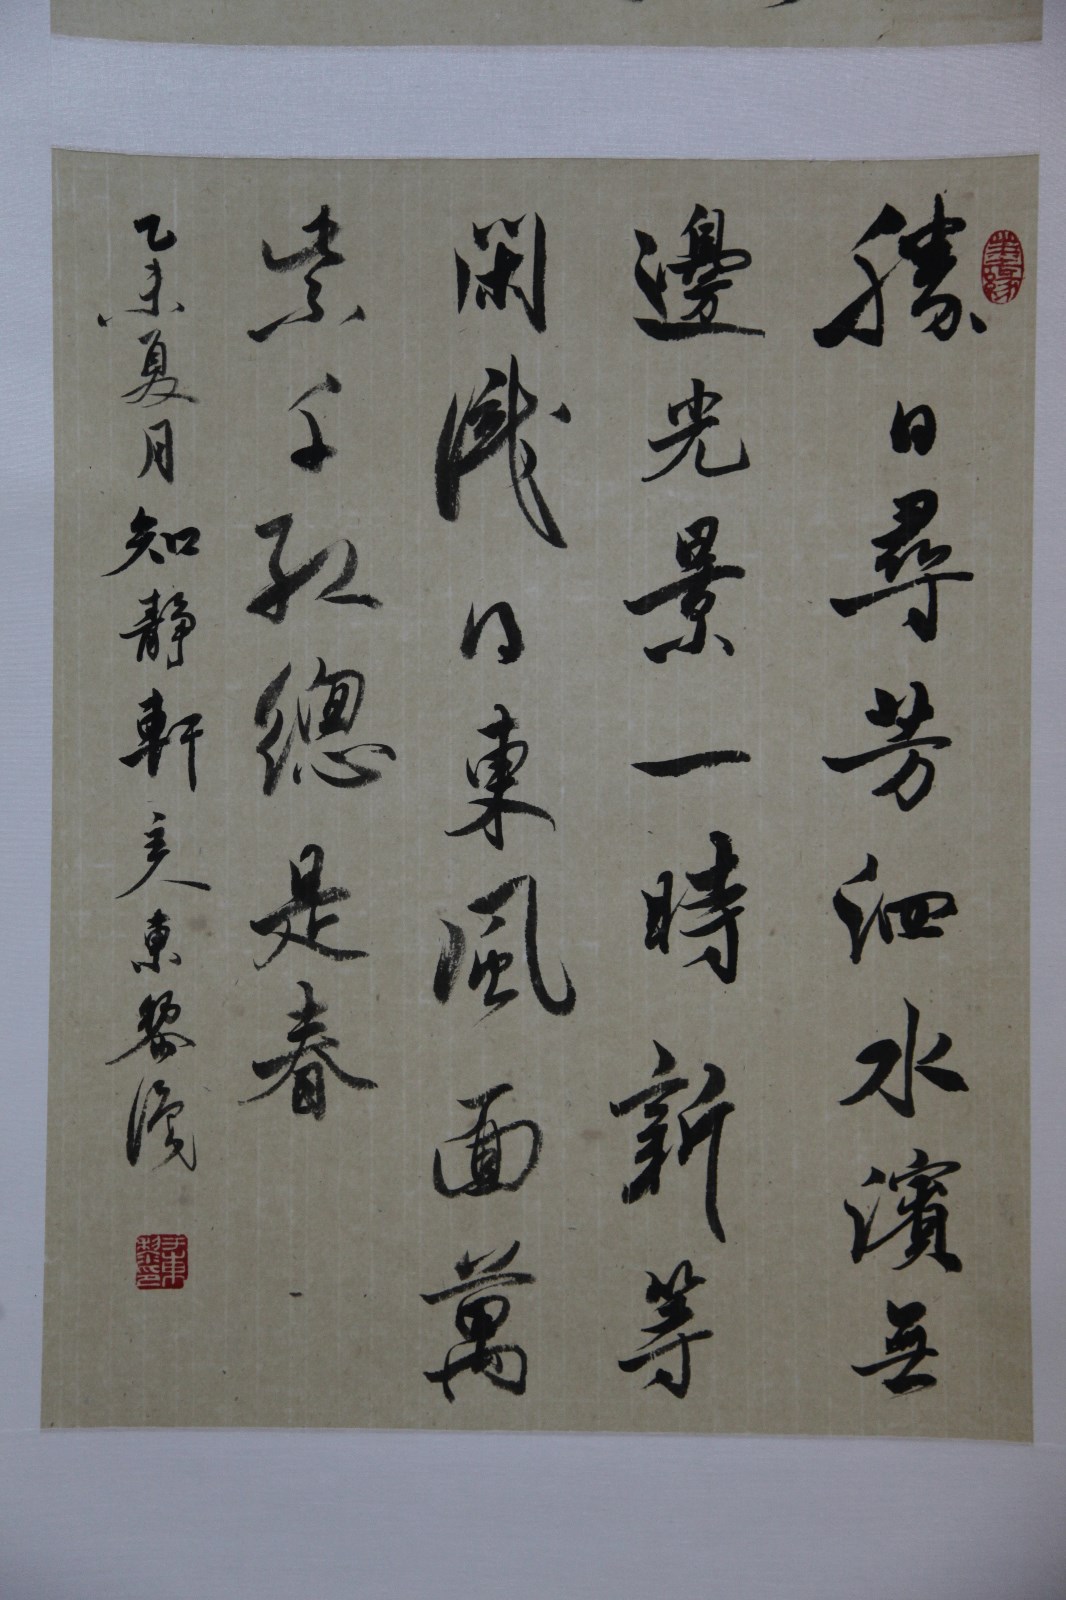 勝日尋芳泗水濱無
邊光景一時新等
閑識得東風面萬
紫千紅總是春
乙未夏月知靜軒主人東黎
于東黎印